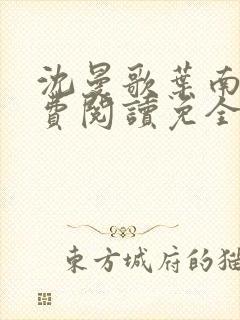 沈曼歌葉南
費閱讀免全
東方城府的猫